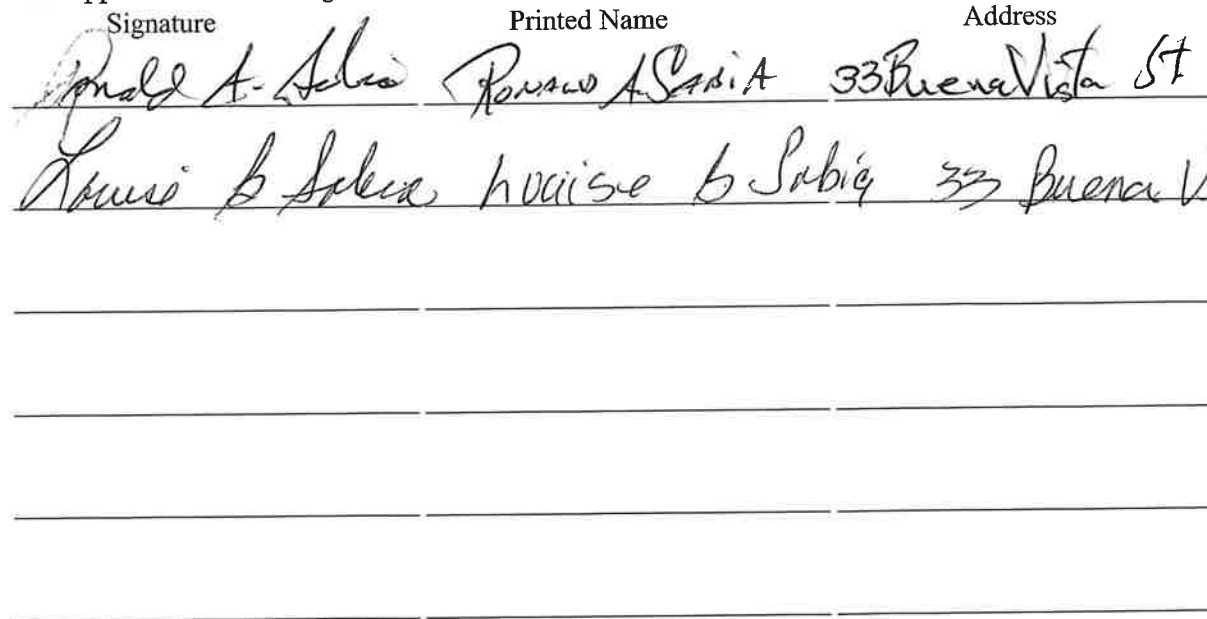 Signature Printed Name Address
Ronald A. Sabia Ronald A Sabia 33 Buena Vista St
Louise B Sabia Louise B Sabia 33 Buena V